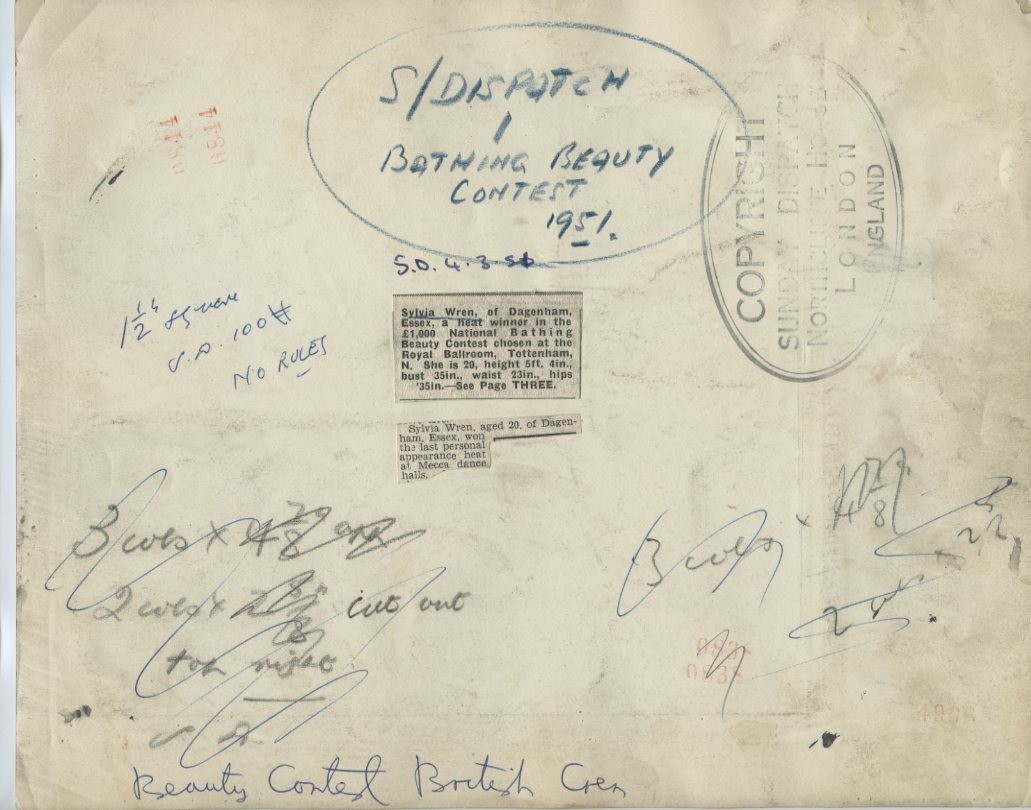 S/DISPATCH
BATHING BEAUTY
CONTEST
1951.
S.D. 4.3.51
COPYRIGHT
SUNDAY DISPATCH
NORTHCLIFFE HOUSE
LONDON
ENGLAND
0844
0844
1 1/2" square
S.D. 100 #
NO RULES
Sylvia Wren, of Dagenham,
Essex, a heat winner in the
£1,000 National Bathing
Beauty Contest chosen at the
Royal Ballroom, Tottenham,
N. She is 20, height 5ft. 4in.,
bust 35in., waist 23in., hips
'35in.—See Page THREE.
Sylvia Wren, aged 20, of Dagen-
ham, Essex, won
the last personal
appearance heat
at Mecca dance
halls.
3 cols x
2 cols x cut out
top right
3 cols x
0838
Beauty Contest British